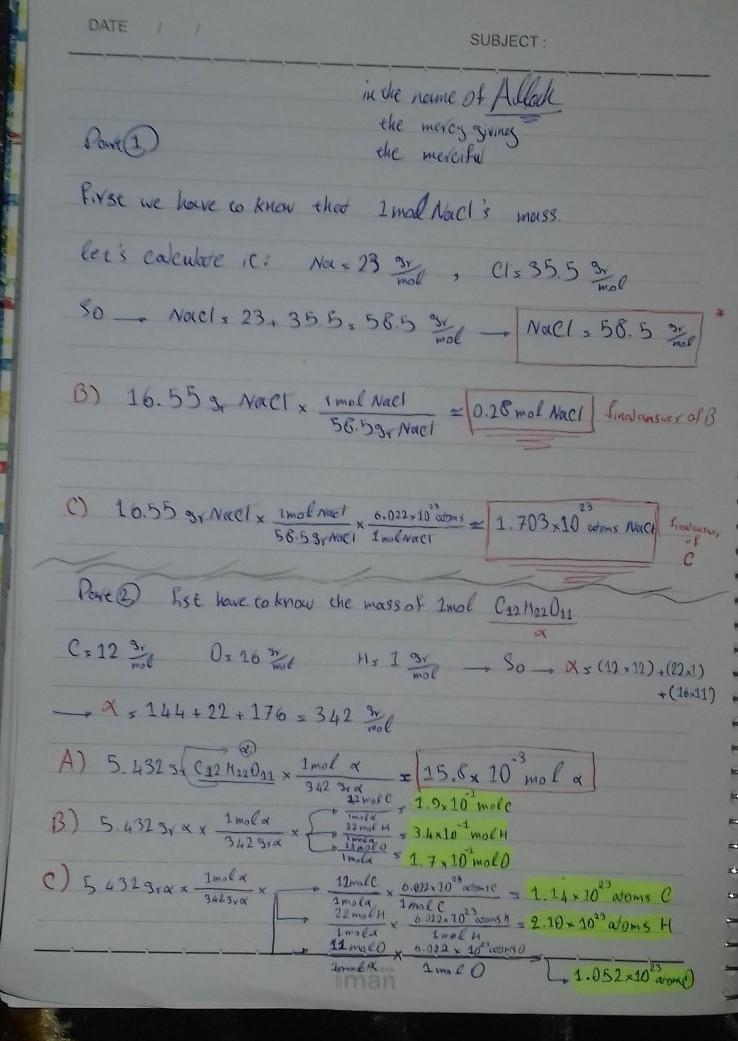 DATE / /
SUBJECT :
in the name of Allah
the mercy giving
the merciful
Part ①
First we have to know that 1mol NaCl's mass.
let's calculate it: Na = 23 gr/mol , Cl = 35.5 gr/mol
So → NaCl = 23 + 35.5 = 58.5 gr/mol → NaCl = 58.5 gr/mol *
B) 16.55 gr NaCl × 1mol NaCl / 58.5gr NaCl ≈ 0.28 mol NaCl final answer of B
C) 16.55 gr NaCl × 1mol NaCl / 58.5gr NaCl × 6.022×10²³ atoms / 1mol NaCl ≈ 1.703×10²³ atoms NaCl final answer of C
Part ② fist have to know the mass of 1mol C12H22O11
α
C = 12 gr/mol O = 16 gr/mol H = 1 gr/mol → So → α = (12×12)+(22×1)
+(16×11)
→ α = 144+22+176 = 342 gr/mol
A) 5.432 gr C12H22O11 (α) × 1mol α / 342 gr α ≈ 15.8×10⁻³ mol α
B) 5.432 gr α × 1mol α / 342 gr α ×
12molC / 1molα = 1.9×10⁻¹ mol C
22mol H / 1molα = 3.4×10⁻¹ mol H
11mol O / 1molα = 1.7×10⁻¹ mol O
C) 5.432 gr α × 1mol α / 342 gr α ×
12molC / 1molα × 6.022×10²³ atoms C / 1mol C = 1.14×10²³ atoms C
22molH / 1molα × 6.022×10²³ atoms H / 1mol H = 2.10×10²³ atoms H
11molO / 1molα × 6.022×10²³ atoms O / 1mol O = 1.052×10²³ atoms O
iman